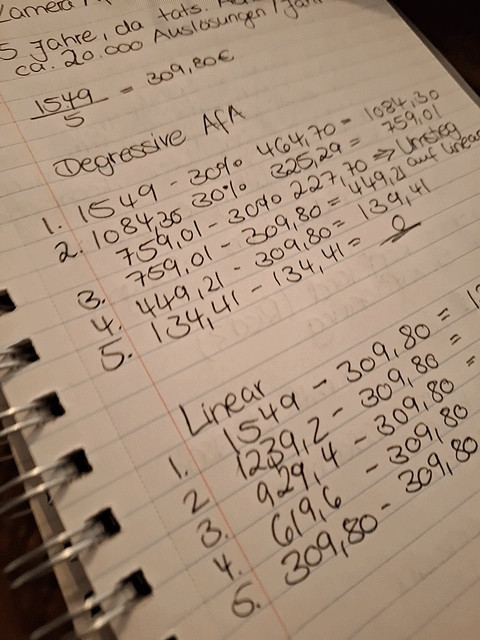 Kamera A
5 Jahre, da tats.
ca. 20.000 Auslösungen/Jahr
1549
5
= 309,80€
Degressive AfA
1. 1549 - 30% 464,70 = 1084,30
2. 1084,30 30% 325,29 = 759,01
759,01 - 30% 227,70 => Umstieg
3. 759,01 - 309,80 = 449,21 auf linear
4. 449,21 - 309,80 = 139,41
5. 134,41 - 134,41 = 0
Linear
1. 1549 - 309,80 =
2 1239,2 - 309,80 =
3. 929,4 - 309,80 =
4. 619,6 - 309,80
5. 309,80 - 309,80